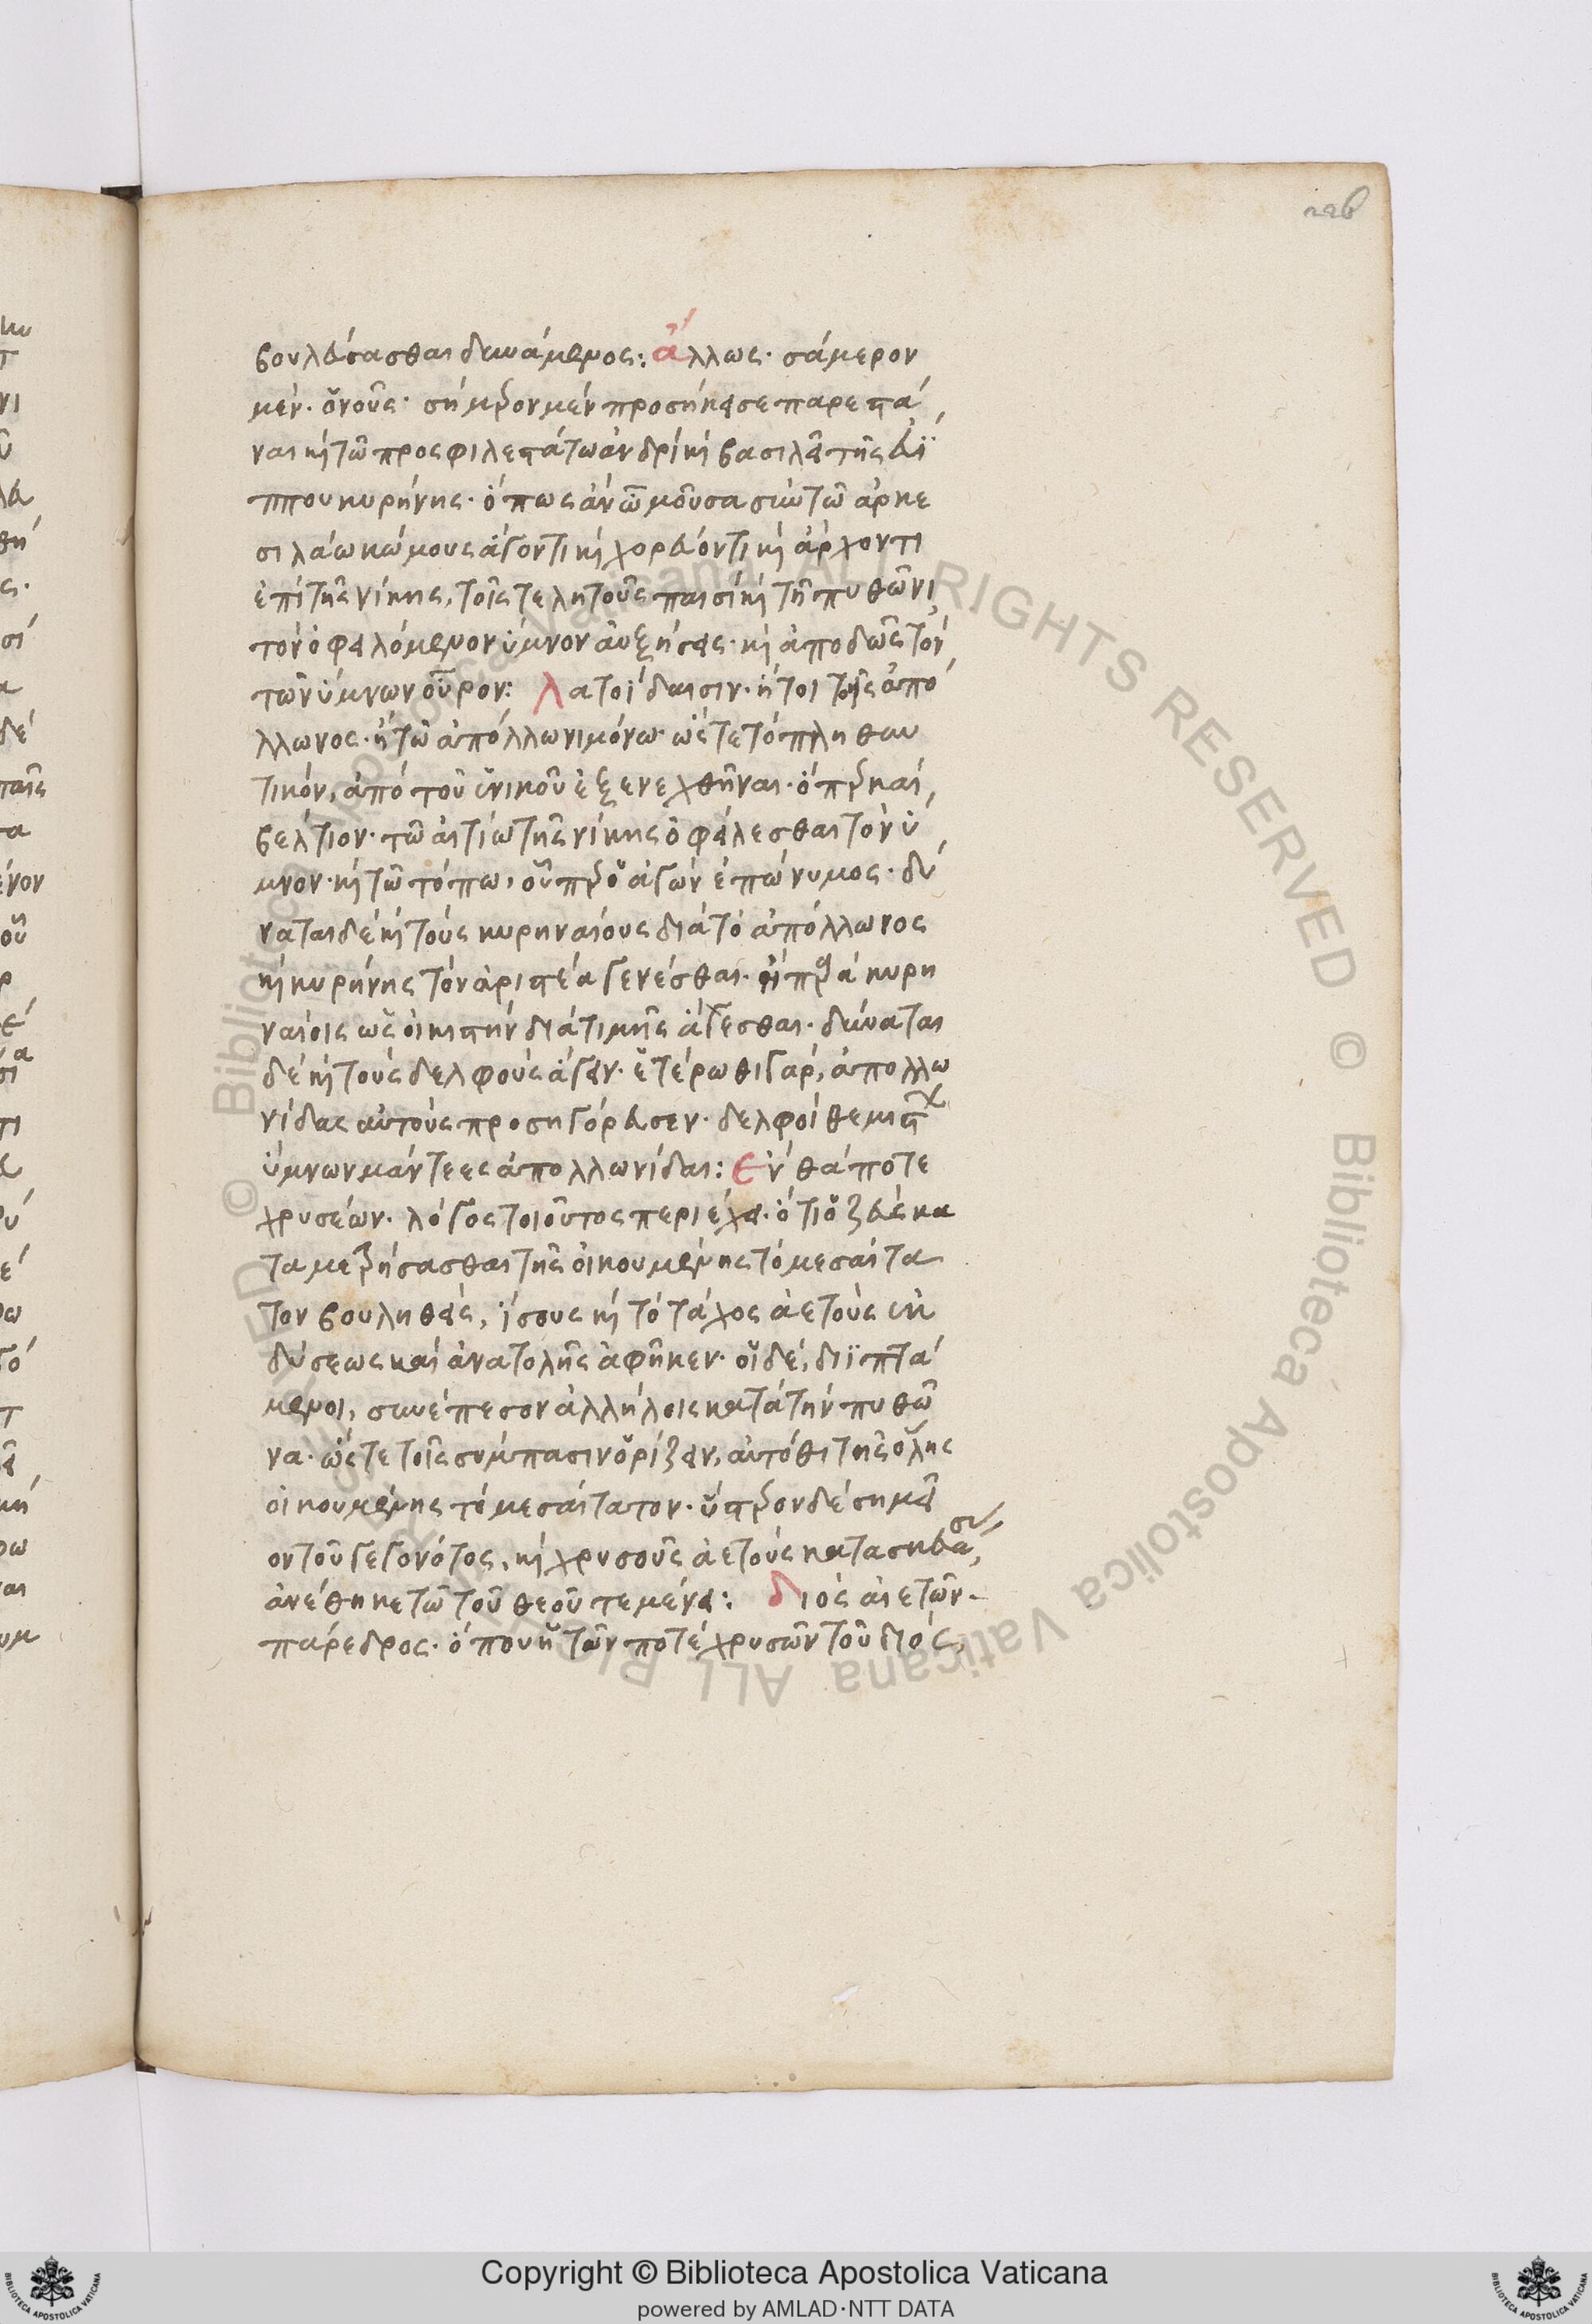 βουλεύσασθαι δυνάμενος: ἄλλως· σάμερον
μέν· ὁ νοῦς· σήμερον μέν προσήκει σε παρεστά
ναι κ̀ τῶ προσφιλεστάτω ἀνδρί κ̀ βασιλεῖ τῆς εὐΐ
ππου κυρήνης· ὅπως ἄν ὦ μοῦσα σύν τῶ ἀρκε
σιλάω κώμους ἄγοντι κ̀ χορεύοντι κ̀ ἄρχοντι
ἐπί τῆς νίκης, τοῖς τε λητοῦς παισί κ̀ τῆ πυθῶνι,
τόν ὀφειλόμενον ὕμνον αὐξήσεις· κ̀ ἀποδώσεις τόν
τῶν ὕμνων οὖρον: λατοΐδαισιν· ἤτοι τοῖς ἀπό
λλωνος· ἤ τῶ ἀπόλλωνι μόνω· ὥστε τό πληθυν
τικόν, ἀπό τοῦ ἑνικοῦ ἐξενεχθῆναι· ὅπερ καί
βέλτιον· τῶ αἰτίω τῆς νίκης ὀφείλεσθαι τόν ὕ
μνον· κ̀ τῶ τόπω, οὗπερ ὁ ἀγών ἐπώνυμος· δύ
ναται δέ κ̀ τούς κυρηναίους διά τό ἀπόλλωνος
κ̀ κυρήνης τόν ἀριστέα γενέσθαι· παρά κυρη
ναίοις ὡς οἰκιστήν διά τιμῆς ἄγεσθαι· δύναται
δέ κ̀ τούς δελφούς ἄγειν· ἑτέρωθι γάρ, ἀπολλω
νίδας αὐτούς προσηγόρευσεν· δελφοί θεμιστ
ὕμνων μάντιες ἀπολλωνίδαι: ἔνθά ποτε
χρυσέων· λόγος τοιοῦτος περιέχει· ὅτι ὁ ζεύς κα
ταμετρήσασθαι τῆς οἰκουμένης τό μεσαίτα
τον βουληθείς, ἴσους κ̀ τό τάχος ἀετούς ἐκ
δύσεως καί ἀνατολῆς ἀφῆκεν· οἱ δέ, διϊπτά
μενοι, συνέπεσον ἀλλήλοις κατά τήν πυθῶ
να· ὥστε τοῖς σύμπασιν ὁρίζειν, αὐτόθι τῆς ὅλης
οἰκουμένης τό μεσαίτατον· ὕστερον δέ σημεῖ
ον τοῦ γεγονότος, κ̀ χρυσοῦς ἀετούς κατασκευάσας,
ἀνέθηκε τῶ τοῦ θεοῦ τεμένει: διός αἰετῶν·
πάρεδρος· ὅπου ἡ τῶν ποτέ χρυσῶν τοῦ διός,
Copyright © Biblioteca Apostolica Vaticana
powered by AMLAD·NTT DATA
© Biblioteca Apostolica Vaticana ALL RIGHTS RESERVED © Biblioteca Apostolica Vaticana ALL RIGHTS RESERVED